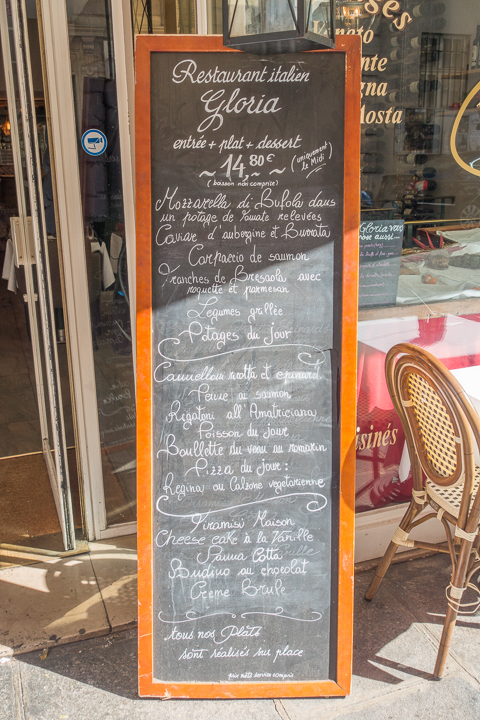 Restaurant italien
Gloria
entrée + plat + dessert
~ 14,80€ ~
(uniquement le Midi)
(boisson non comprise)
Mozzarella di Bufola dans
un potage de tomate relevées
Caviar d'aubergine et Burrata
Carpaccio de saumon
Tranches de Bresaola avec
roquette et parmesan
Legumes grillée
Potages du jour
Cannelloni ricotta et epinard
Penne au saumon
Rigatoni all'Amatriciana
Poisson du jour
Boullette du veau au romarin
Pizza du jour:
Regina ou Calzone vegetarienne
Tiramisù Maison
Cheese cake à la Vanille
Panna Cotta
Budino au chocolat
Creme Brule
tous nos Plats
sont réalisés sur place
prix nets service compris
nte
gna
Aosta
Gloria vous